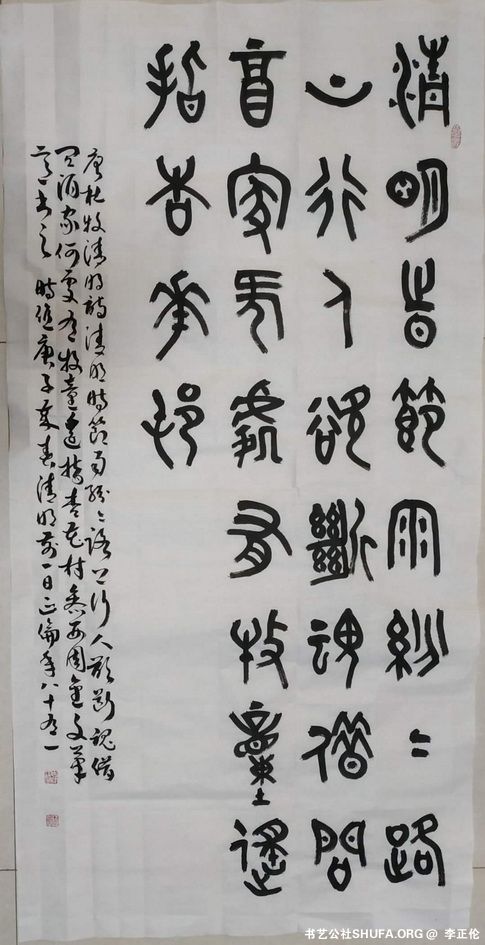 清明旹節雨紛〻路
上行人欲斷魂借問
酉家何處有牧童遙
指杏花邨
唐杜牧清明詩清明時節雨紛〻路上行人欲斷魂借
問酒家何處有牧童遙指杏花村參西周金文筆
意書之 時值庚子年春清明前一日正倫年八十有一
书艺公社SHUFA.ORG @ 李正伦